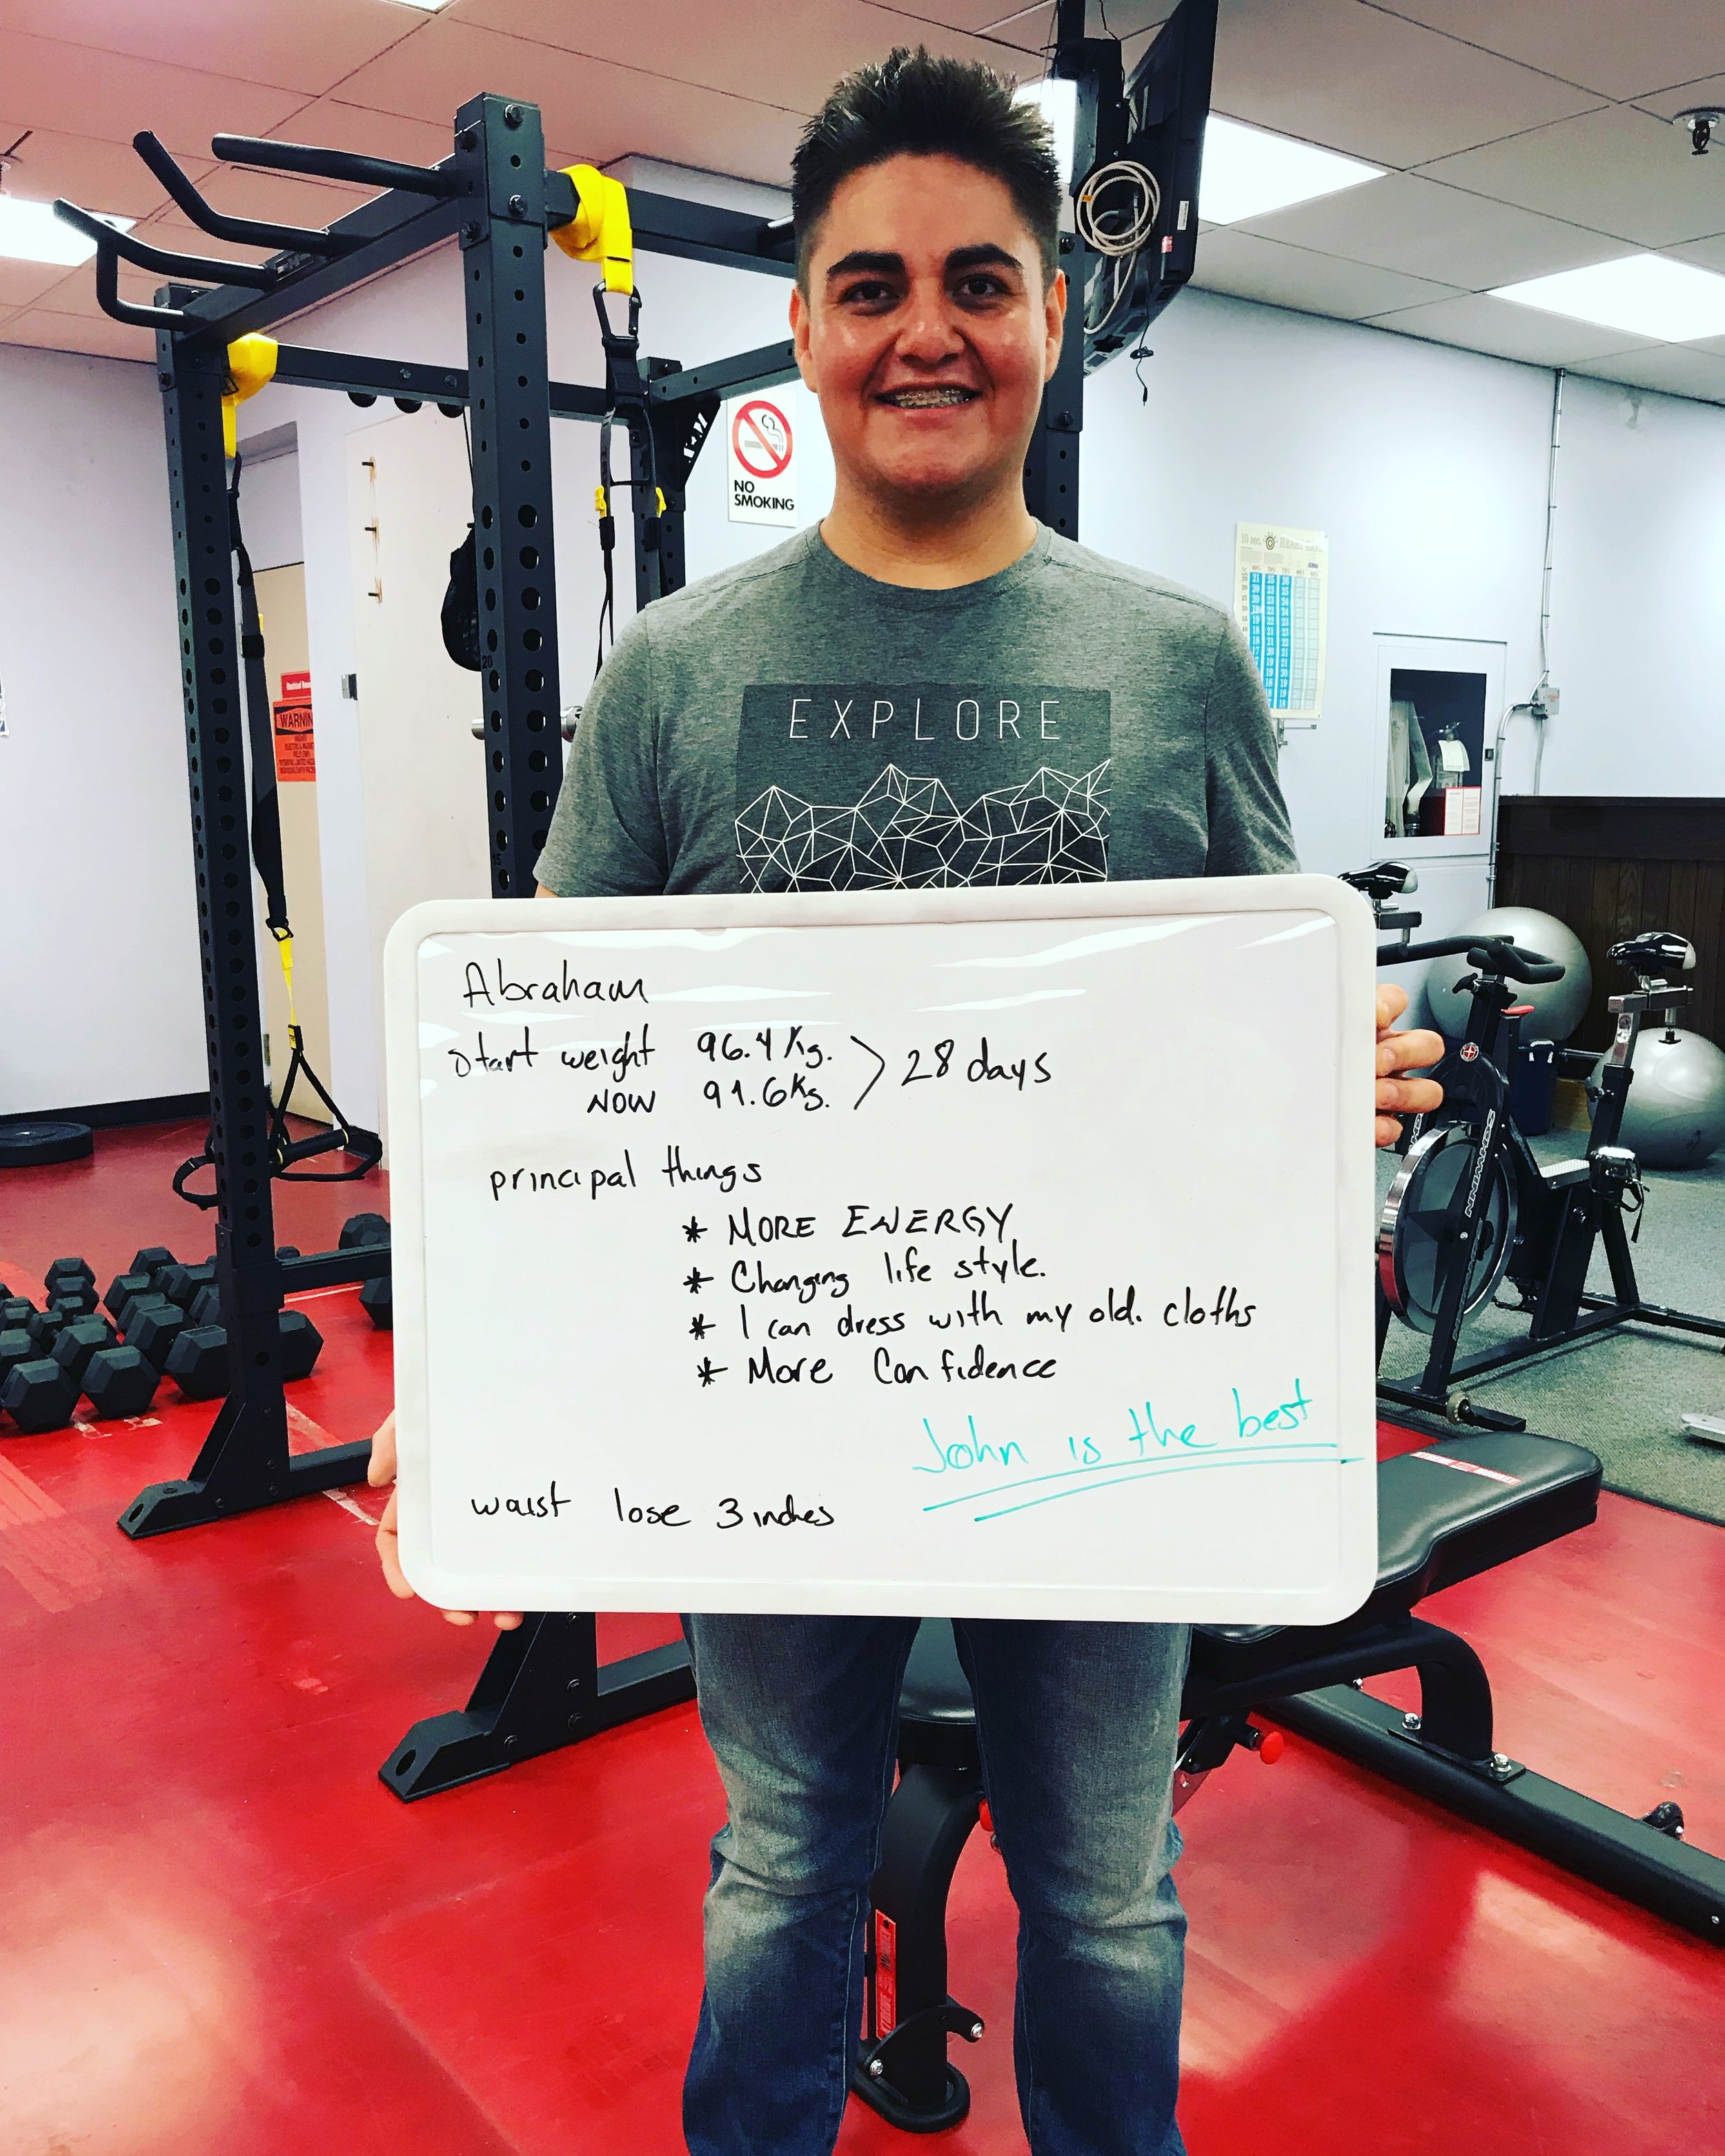 NO
SMOKING
WARNING
EXPLORE
Abraham
start weight 96.4 Kg.
NOW 91.6 Kg.
> 28 days
principal things
* MORE ENERGY
* Changing life style.
* I can dress with my old. cloths
* More Confidence
John is the best
waist lose 3 inches
SCHWINN
20
15